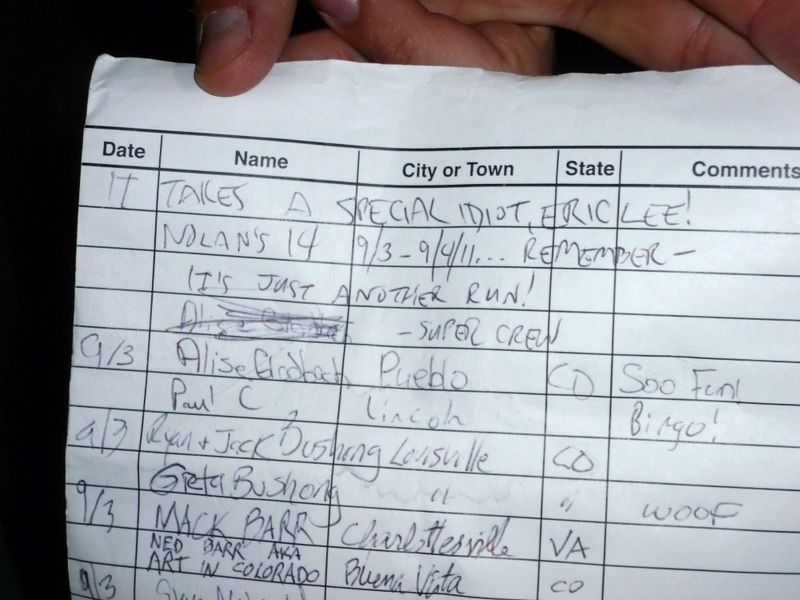 Date Name City or Town State Comments
IT TAKES A SPECIAL IDIOT, ERIC LEE!
NOLAN'S 14 9/3 - 9/4/11... REMEMBER -
IT'S JUST ANOTHER RUN!
Alise - SUPER CREW
9/3 Alise Pueblo CO Soo Fun!
Paul C, Lincoln Bingo!
9/3 Ryan + Jack Bushong Louisville CO
Greta Bushong " " WOOF
9/3 MACK BARR Charlottesville VA
NED BARR AKA
ART IN COLORADO Buena Vista CO
9/3